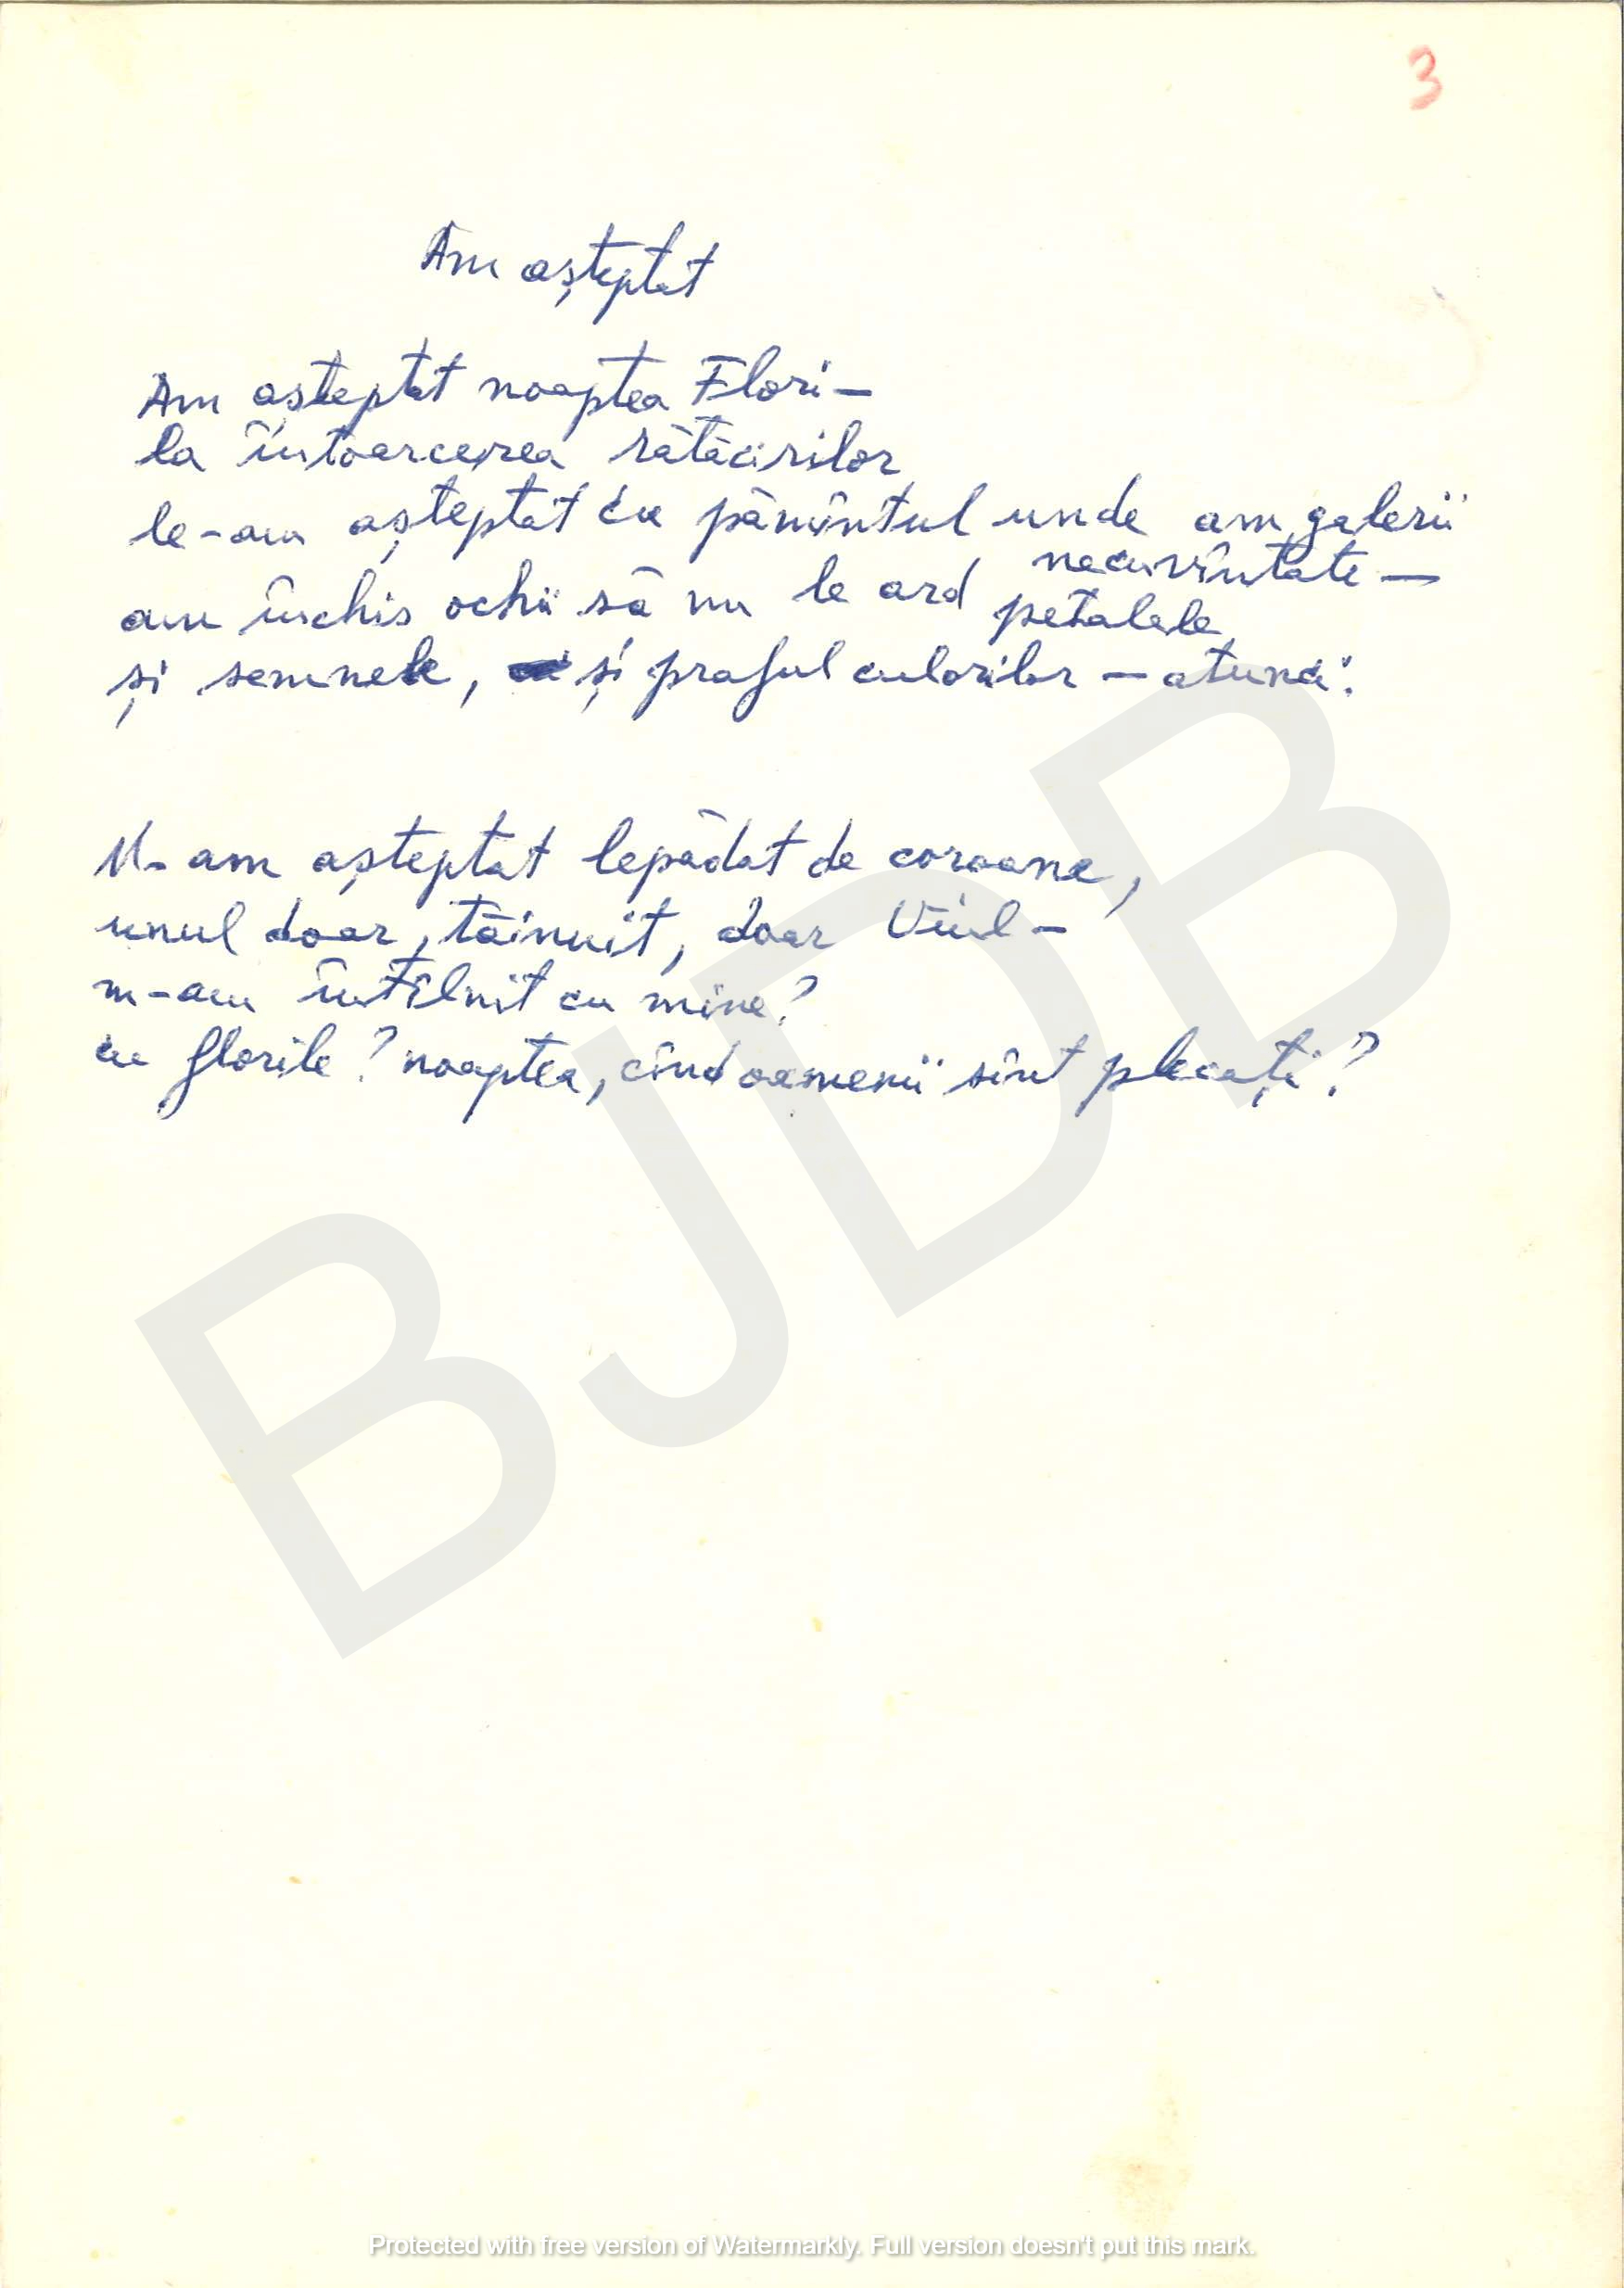 3
Am așteptat
Am așteptat noaptea Flori –
la întoarcerea rătăcirilor
le-am așteptat cu pămîntul unde am galerii
necuvîntate –
am închis ochii să nu le ard petalele,
și semnele, și praful culorilor – atunci.
M-am așteptat lepădat de coroane,
unul doar, tăinuit, doar Viul –
m-am întîlnit cu mine?
cu florile? noaptea, cînd oamenii sînt plecați?
BJDB
Protected with free version of Watermarkly. Full version doesn't put this mark.